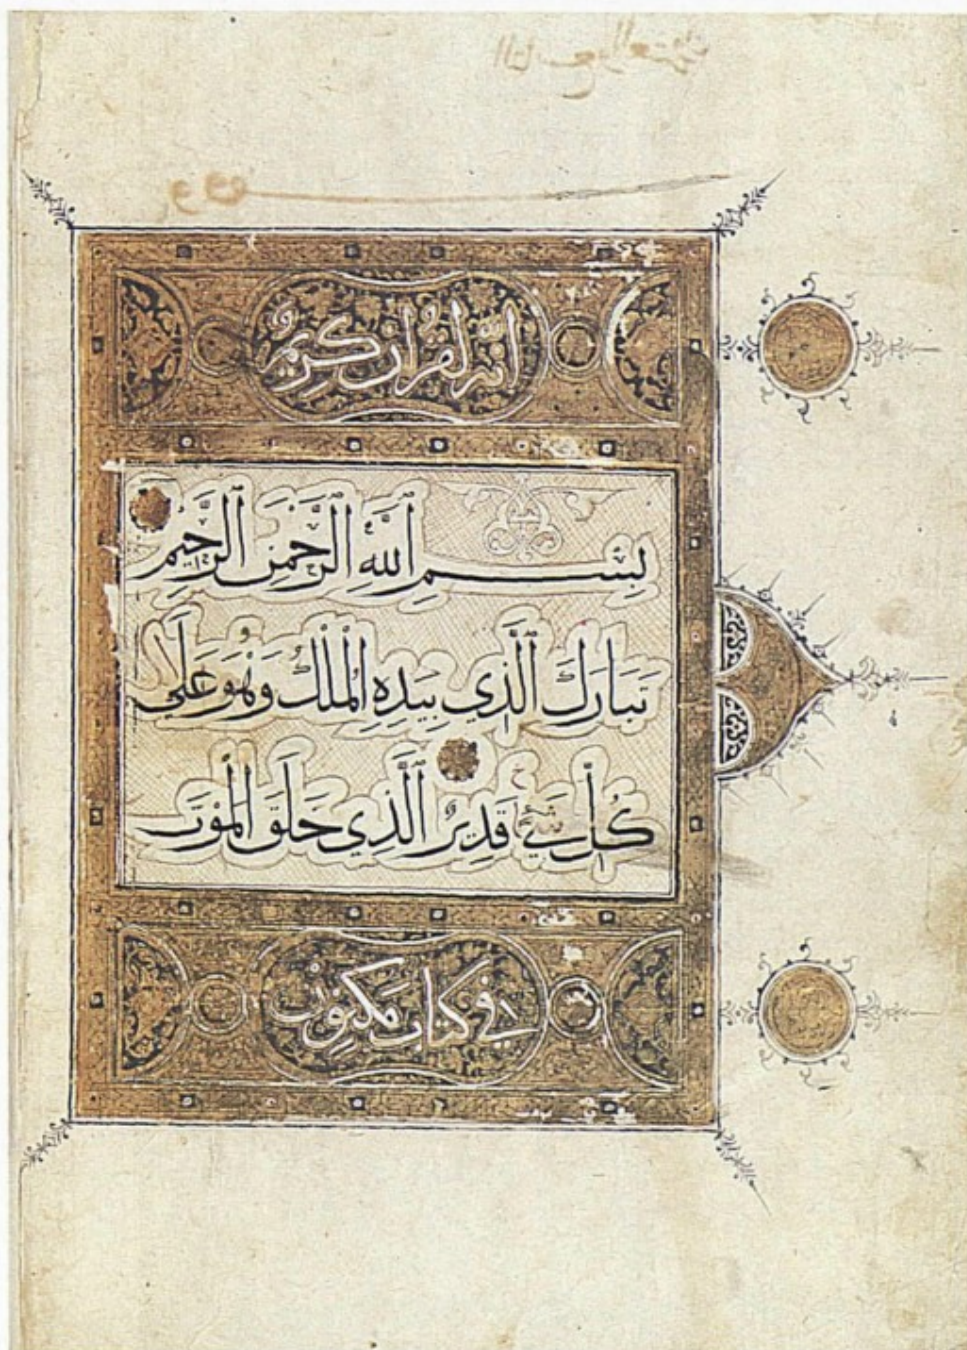 التاسع والعشرون
وقف
انه لقرآن كريم
بِسْمِ اللَّهِ الرَّحْمَٰنِ الرَّحِيمِ
تَبَارَكَ الَّذِي بِيَدِهِ الْمُلْكُ وَهُوَ عَلَى
كُلِّ شَيْءٍ قَدِيرٌ الَّذِي خَلَقَ الْمَوْتَ
في كتاب مكنون